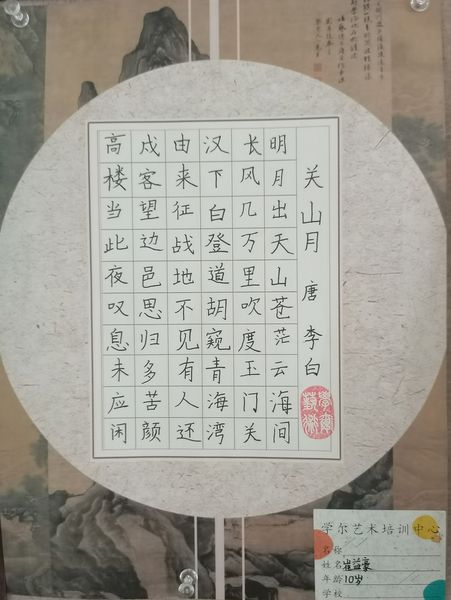 关山月 唐 李白
明月出天山苍茫云海间
长风几万里吹度玉门关
汉下白登道胡窥青海湾
由来征战地不见有人还
戍客望边邑思归多苦颜
高楼当此夜叹息未应闲
學爾藝術
学尔艺术培训中心
名称
姓名 崔益豪
年龄 10岁
学校